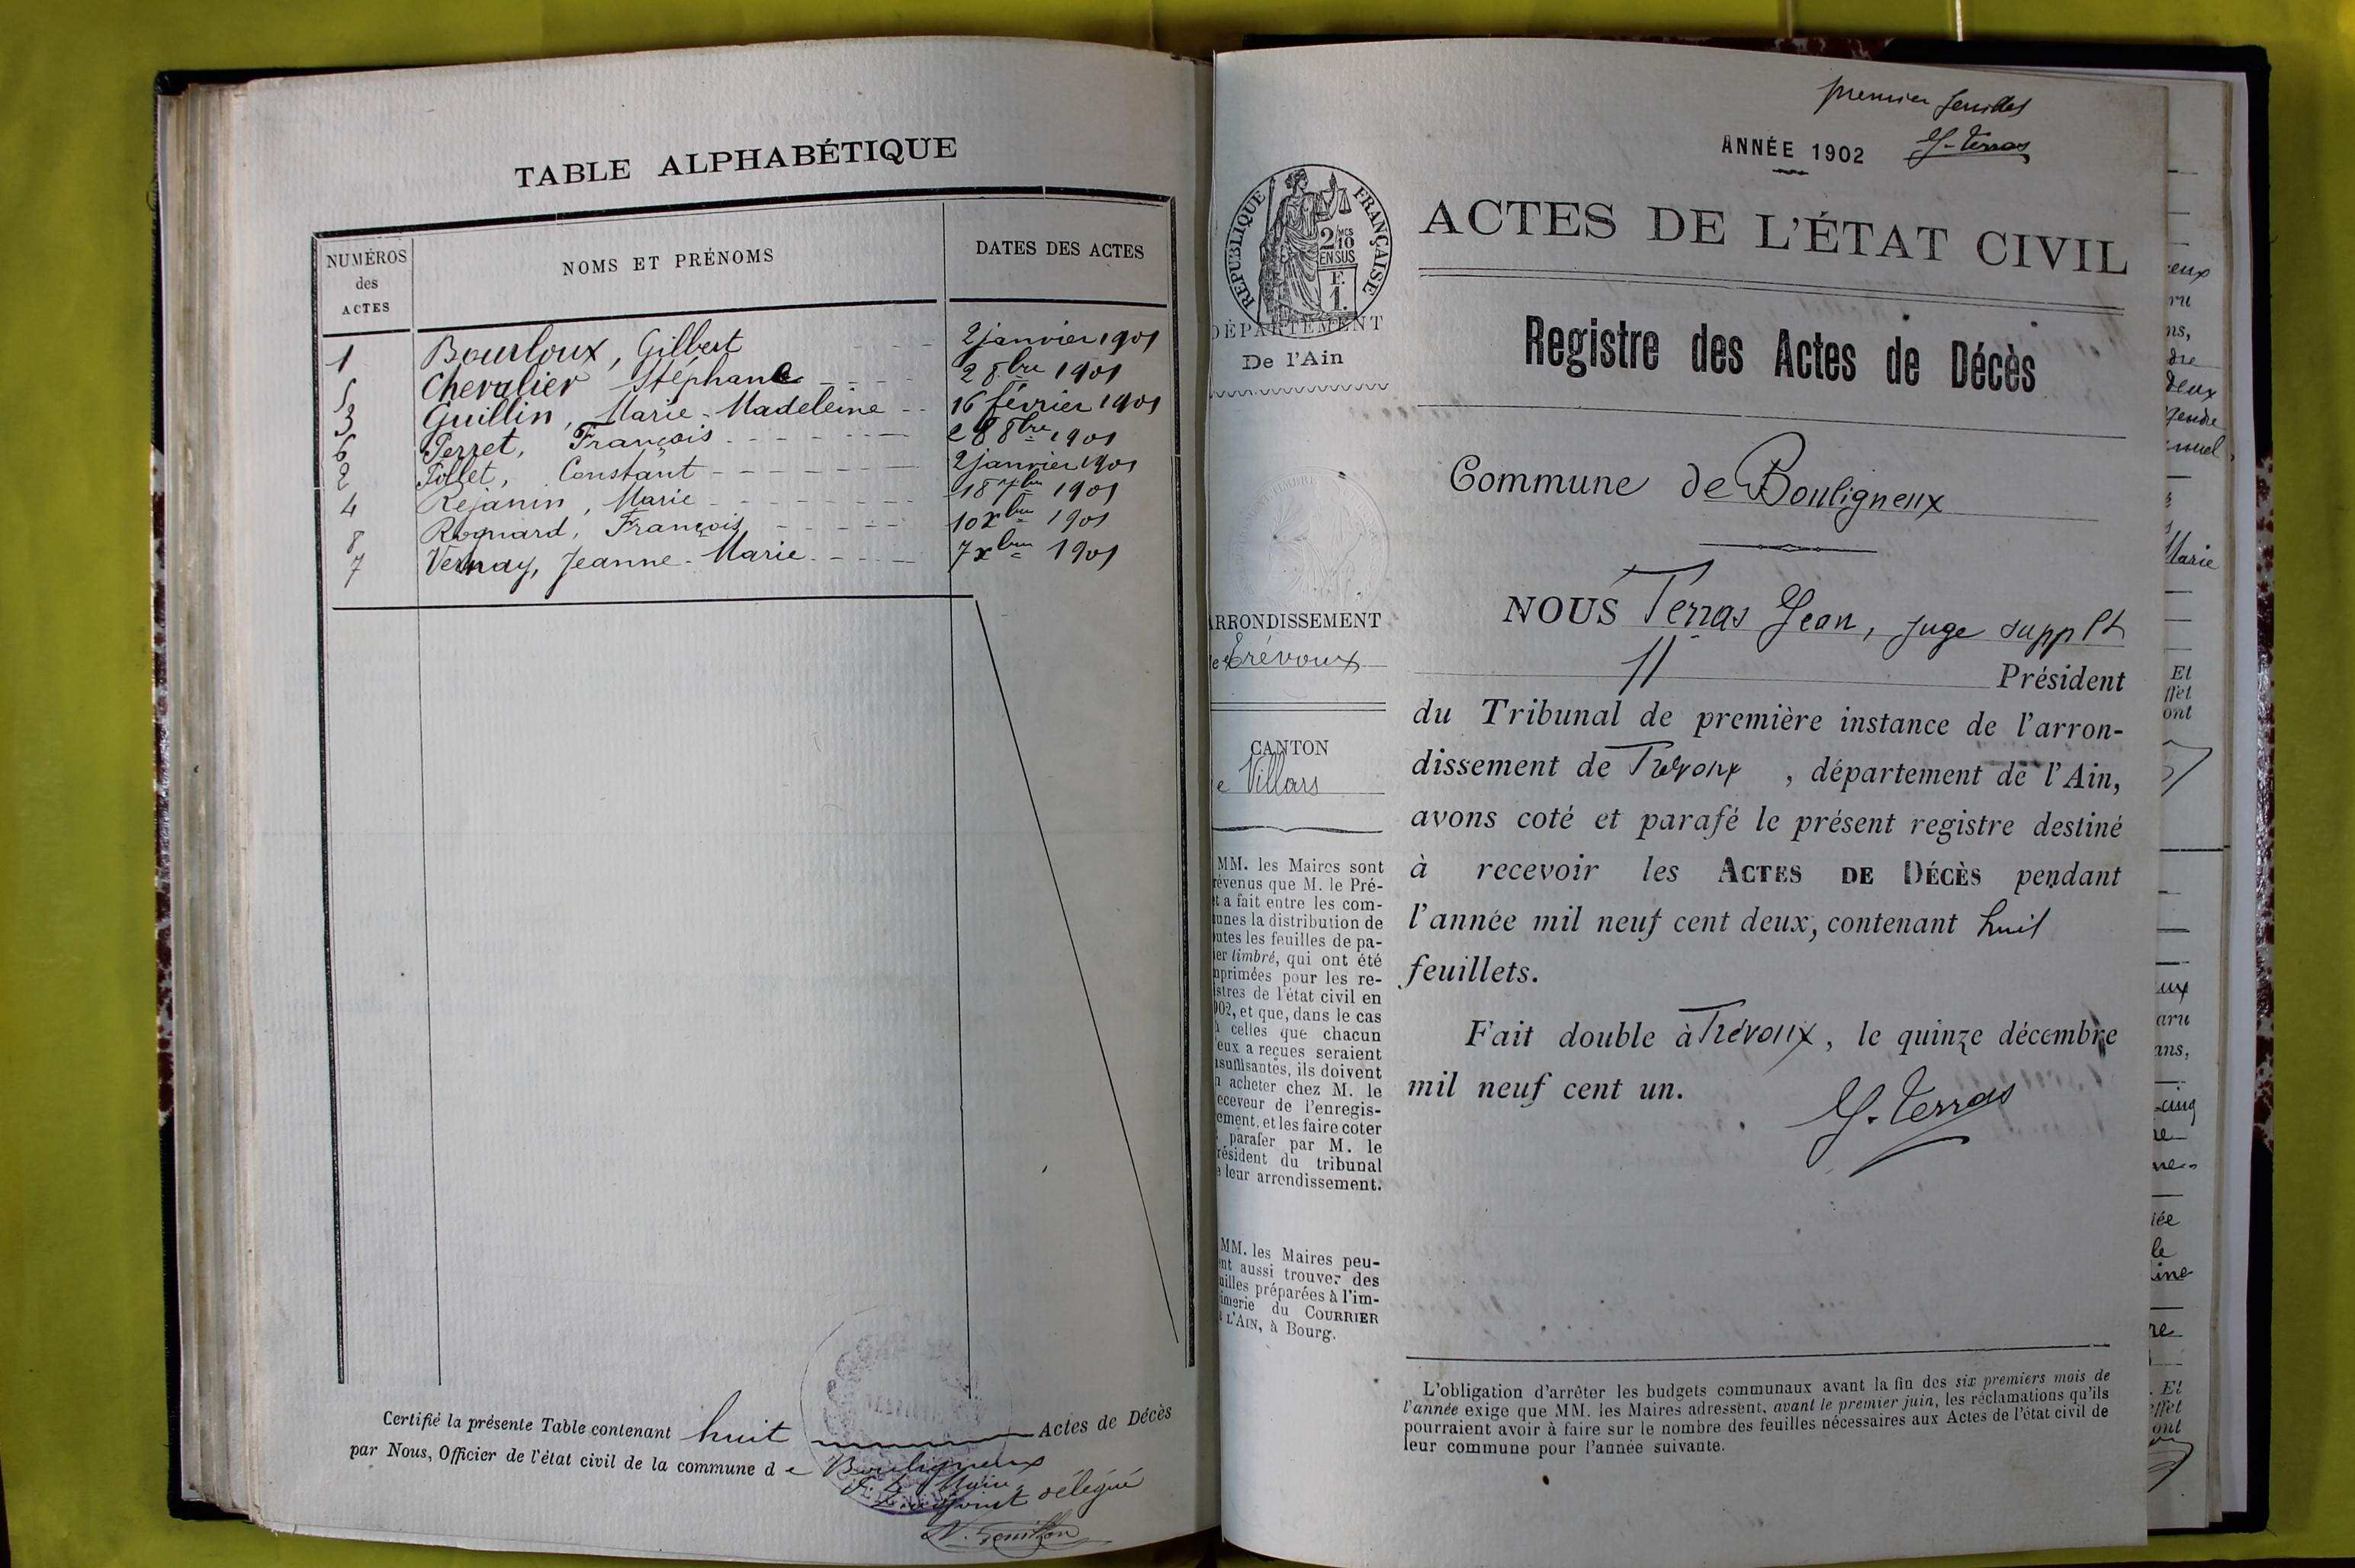 TABLE ALPHABÉTIQUE
NUMÉROS des ACTES
NOMS ET PRÉNOMS
DATES DES ACTES
1 Bourloux, Gilbert 2 janvier 1901
5 Chevalier Stéphane 2 8bre 1901
3 Guillin, Marie-Madeleine 16 février 1901
6 Perret, François 28 8bre 1901
2 Pollet, Constant 2 janvier 1901
4 Rejanin, Marie 18 7bre 1901
8 Rognard, François 10 xbre 1901
7 Vernay, Jeanne-Marie 7 xbre 1901
Certifié la présente Table contenant huit Actes de Décès
par Nous, Officier de l'état civil de la commune de Bouligneux
Le Maire,
L'adjoint délégué
premier
ANNÉE 1902 J. Terras
RÉPUBLIQUE FRANÇAISE
2/10 MES
EN SUS
F.
1.
DÉPARTEMENT
De l'Ain
ARRONDISSEMENT
de Trévoux
CANTON
e Villars
MM. les Maires sont
révenus que M. le Pré-
t a fait entre les com-
unes la distribution de
utes les feuilles de pa-
er timbré, qui ont été
mprimées pour les re-
istres de l'état civil en
902, et que, dans le cas
celles que chacun
eux a reçues seraient
nsuffisantes, ils doivent
n acheter chez M. le
eceveur de l'enregis-
ement, et les faire coter
parafer par M. le
résident du tribunal
e leur arrondissement.
MM. les Maires peu-
ent aussi trouver des
uilles préparées à l'im-
imerie du COURRIER
L'AIN, à Bourg.
ACTES DE L'ÉTAT CIVIL
Registre des Actes de Décès
Commune de Bouligneux
NOUS Terras Jean, juge suppl t
Président
du Tribunal de première instance de l'arron-
dissement de Trévoux, département de l'Ain,
avons coté et parafé le présent registre destiné
à recevoir les ACTES DE DÉCÈS pendant
l'année mil neuf cent deux, contenant huit
feuillets.
Fait double à Trévoux, le quinze décembre
mil neuf cent un.
J. Terras
L'obligation d'arrêter les budgets communaux avant la fin des six premiers mois de
l'année exige que MM. les Maires adressent, avant le premier juin, les réclamations qu'ils
pourraient avoir à faire sur le nombre des feuilles nécessaires aux Actes de l'état civil de
leur commune pour l'année suivante.